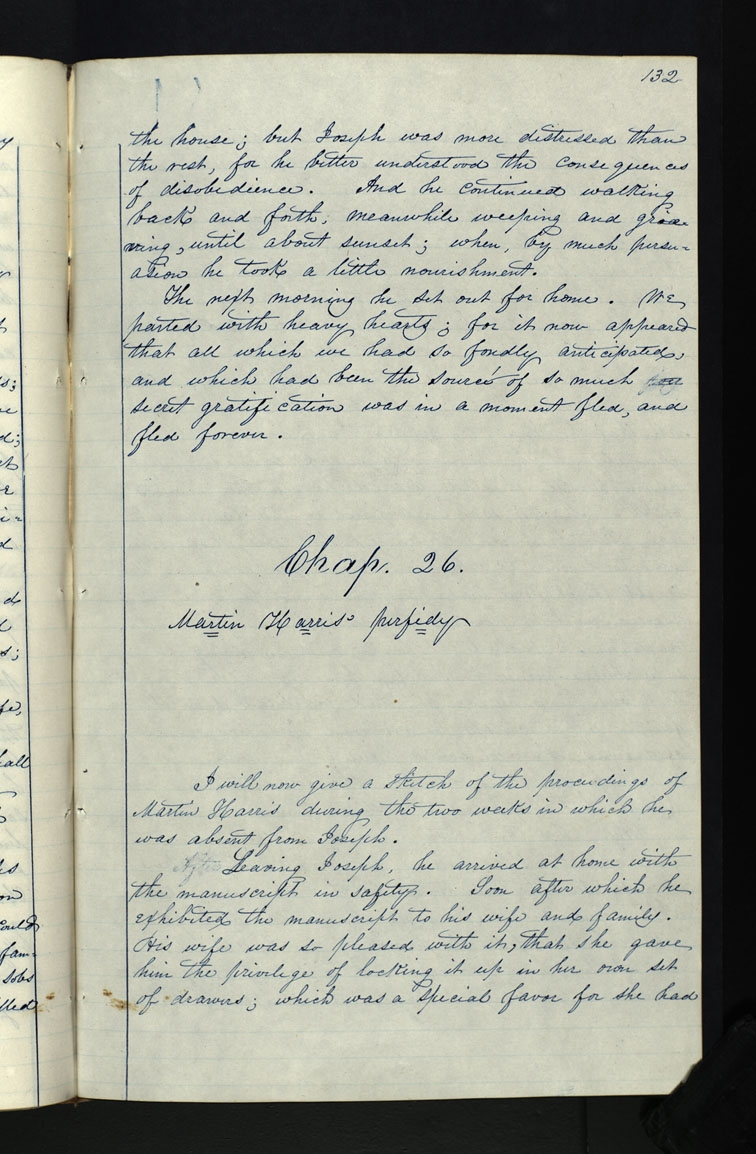 132
the house; but Joseph was more distressed than
the rest, for he better understood the consequences
of disobedience. And he continued walking
back and forth, meanwhile weeping and grie-
ving, until about sunset; when, by much persu-
asion he took a little nourishment.
The next morning he set out for home. We
parted with heavy hearts; for it now appeared
that all which we had so fondly anticipated,
and which had been the source of so much
secret gratification was in a moment fled, and
fled forever.
Chap. 26.
Martin Harris' perfidy
I will now give a sketch of the proceedings of
Martin Harris during the two weeks in which he
was absent from Joseph.
After Leaving Joseph, he arrived at home with
the manuscript in safety. Soon after which he
exhibited the manuscript to his wife and family.
His wife was so pleased with it, that she gave
him the privilege of locking it up in her own set
of drawers; which was a special favor for she had